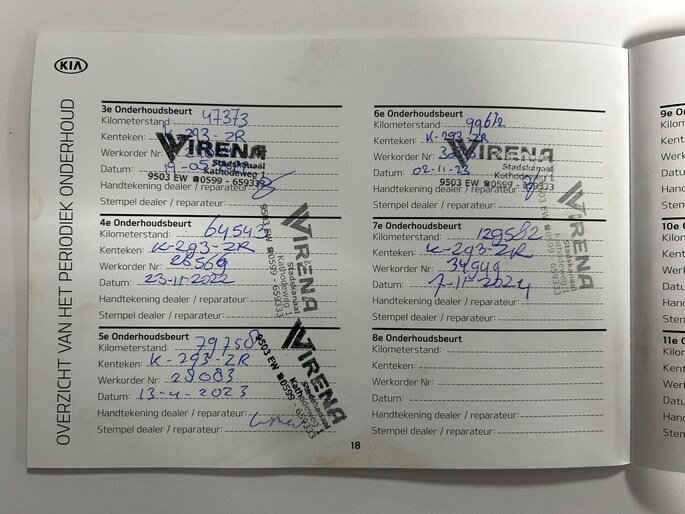 KIA
OVERZICHT VAN HET PERIODIEK ONDERHOUD
3e Onderhoudsbeurt
Kilometerstand: 47373
Kenteken: K-293-ZR
Werkorder Nr:
Datum: 19-05
Handtekening dealer / reparateur:
Stempel dealer / reparateur:
VIRENA
Stadskanaal
Kathodeweg 1
9503 EW ☎0599 - 659333
4e Onderhoudsbeurt
Kilometerstand: 64543
Kenteken: K-293-ZR
Werkorder Nr: 26569
Datum: 23-11-2022
Handtekening dealer / reparateur:
Stempel dealer / reparateur:
VIRENA
Stadskanaal
Kathodeweg 1
9503 EW ☎0599 - 659333
5e Onderhoudsbeurt
Kilometerstand: 79758
Kenteken: K-293-ZR
Werkorder Nr: 28083
Datum: 13-4-2023
Handtekening dealer / reparateur:
Stempel dealer / reparateur:
VIRENA
Stadskanaal
Kathodeweg 1
9503 EW ☎0599 - 659333
6e Onderhoudsbeurt
Kilometerstand: 99612
Kenteken: K-293-ZR
Werkorder Nr:
Datum: 02-11-23
Handtekening dealer / reparateur:
Stempel dealer / reparateur:
VIRENA
Stadskanaal
Kathodeweg 1
9503 EW ☎0599 - 659333
7e Onderhoudsbeurt
Kilometerstand: 129582
Kenteken: K-293-ZR
Werkorder Nr: 34949
Datum: 7-11-2024
Handtekening dealer / reparateur:
Stempel dealer / reparateur:
VIRENA
Stadskanaal
Kathodeweg 1
9503 EW ☎0599 - 659333
8e Onderhoudsbeurt
Kilometerstand:
Kenteken:
Werkorder Nr:
Datum:
Handtekening dealer / reparateur:
Stempel dealer / reparateur:
18
9e O
Kilom
Kente
Werk
Datu
Hand
Stem
10e
Kilon
Kent
Werl
Datu
Hand
Sten
11e
Kilo
Ken
Wer
Dat
Han
Ste